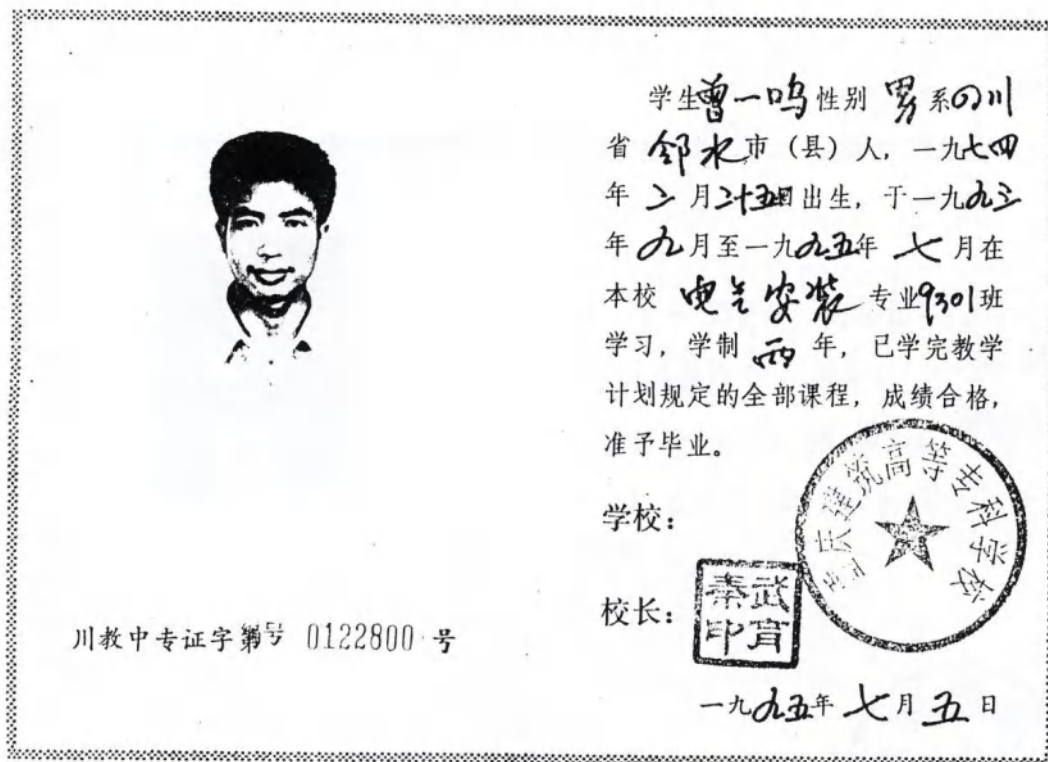 学生曾一鸣性别 男 系四川
省 邻水 市（县）人，一九七四
年 二 月二十五日出生，于一九九三
年 九 月至一九九五年 七 月在
本校 电气安装 专业9301班
学习，学制 两 年，已学完教学
计划规定的全部课程，成绩合格，
准予毕业。
学校：
重庆建筑高等专科学校
校长：
武育
秦印
川教中专证字第号 0122800 号
一九九五年 七 月 五 日